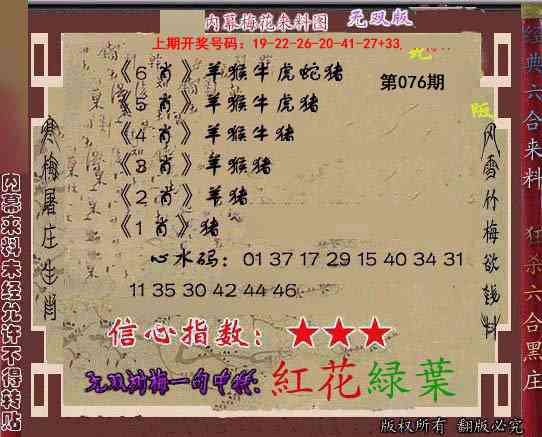 内幕梅花来料图 无双版
上期开奖号码：19-22-26-20-41-27+33
《6 肖 》羊猴牛虎蛇猪
第076期
《5 肖 》羊猴牛虎猪
《4 肖 》羊猴牛猪
《3 肖 》羊猴猪
《2 肖 》羊猪
《1 肖 》猪
心水码：01 37 17 29 15 40 34 31
11 35 30 42 44 46
信心指数：★★★
紅花緑葉
版权所有 翻版必究
寒梅屠庄生肖
内幕来料未经允许不得转贴
风雪竹梅欲钱料
经典六合来料 狂杀六合黑庄